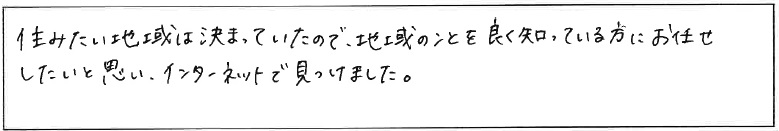 住みたい地域は決まっていたので、地域のことを良く知っている方にお任せ
したいと思い、インターネットで見つけました。